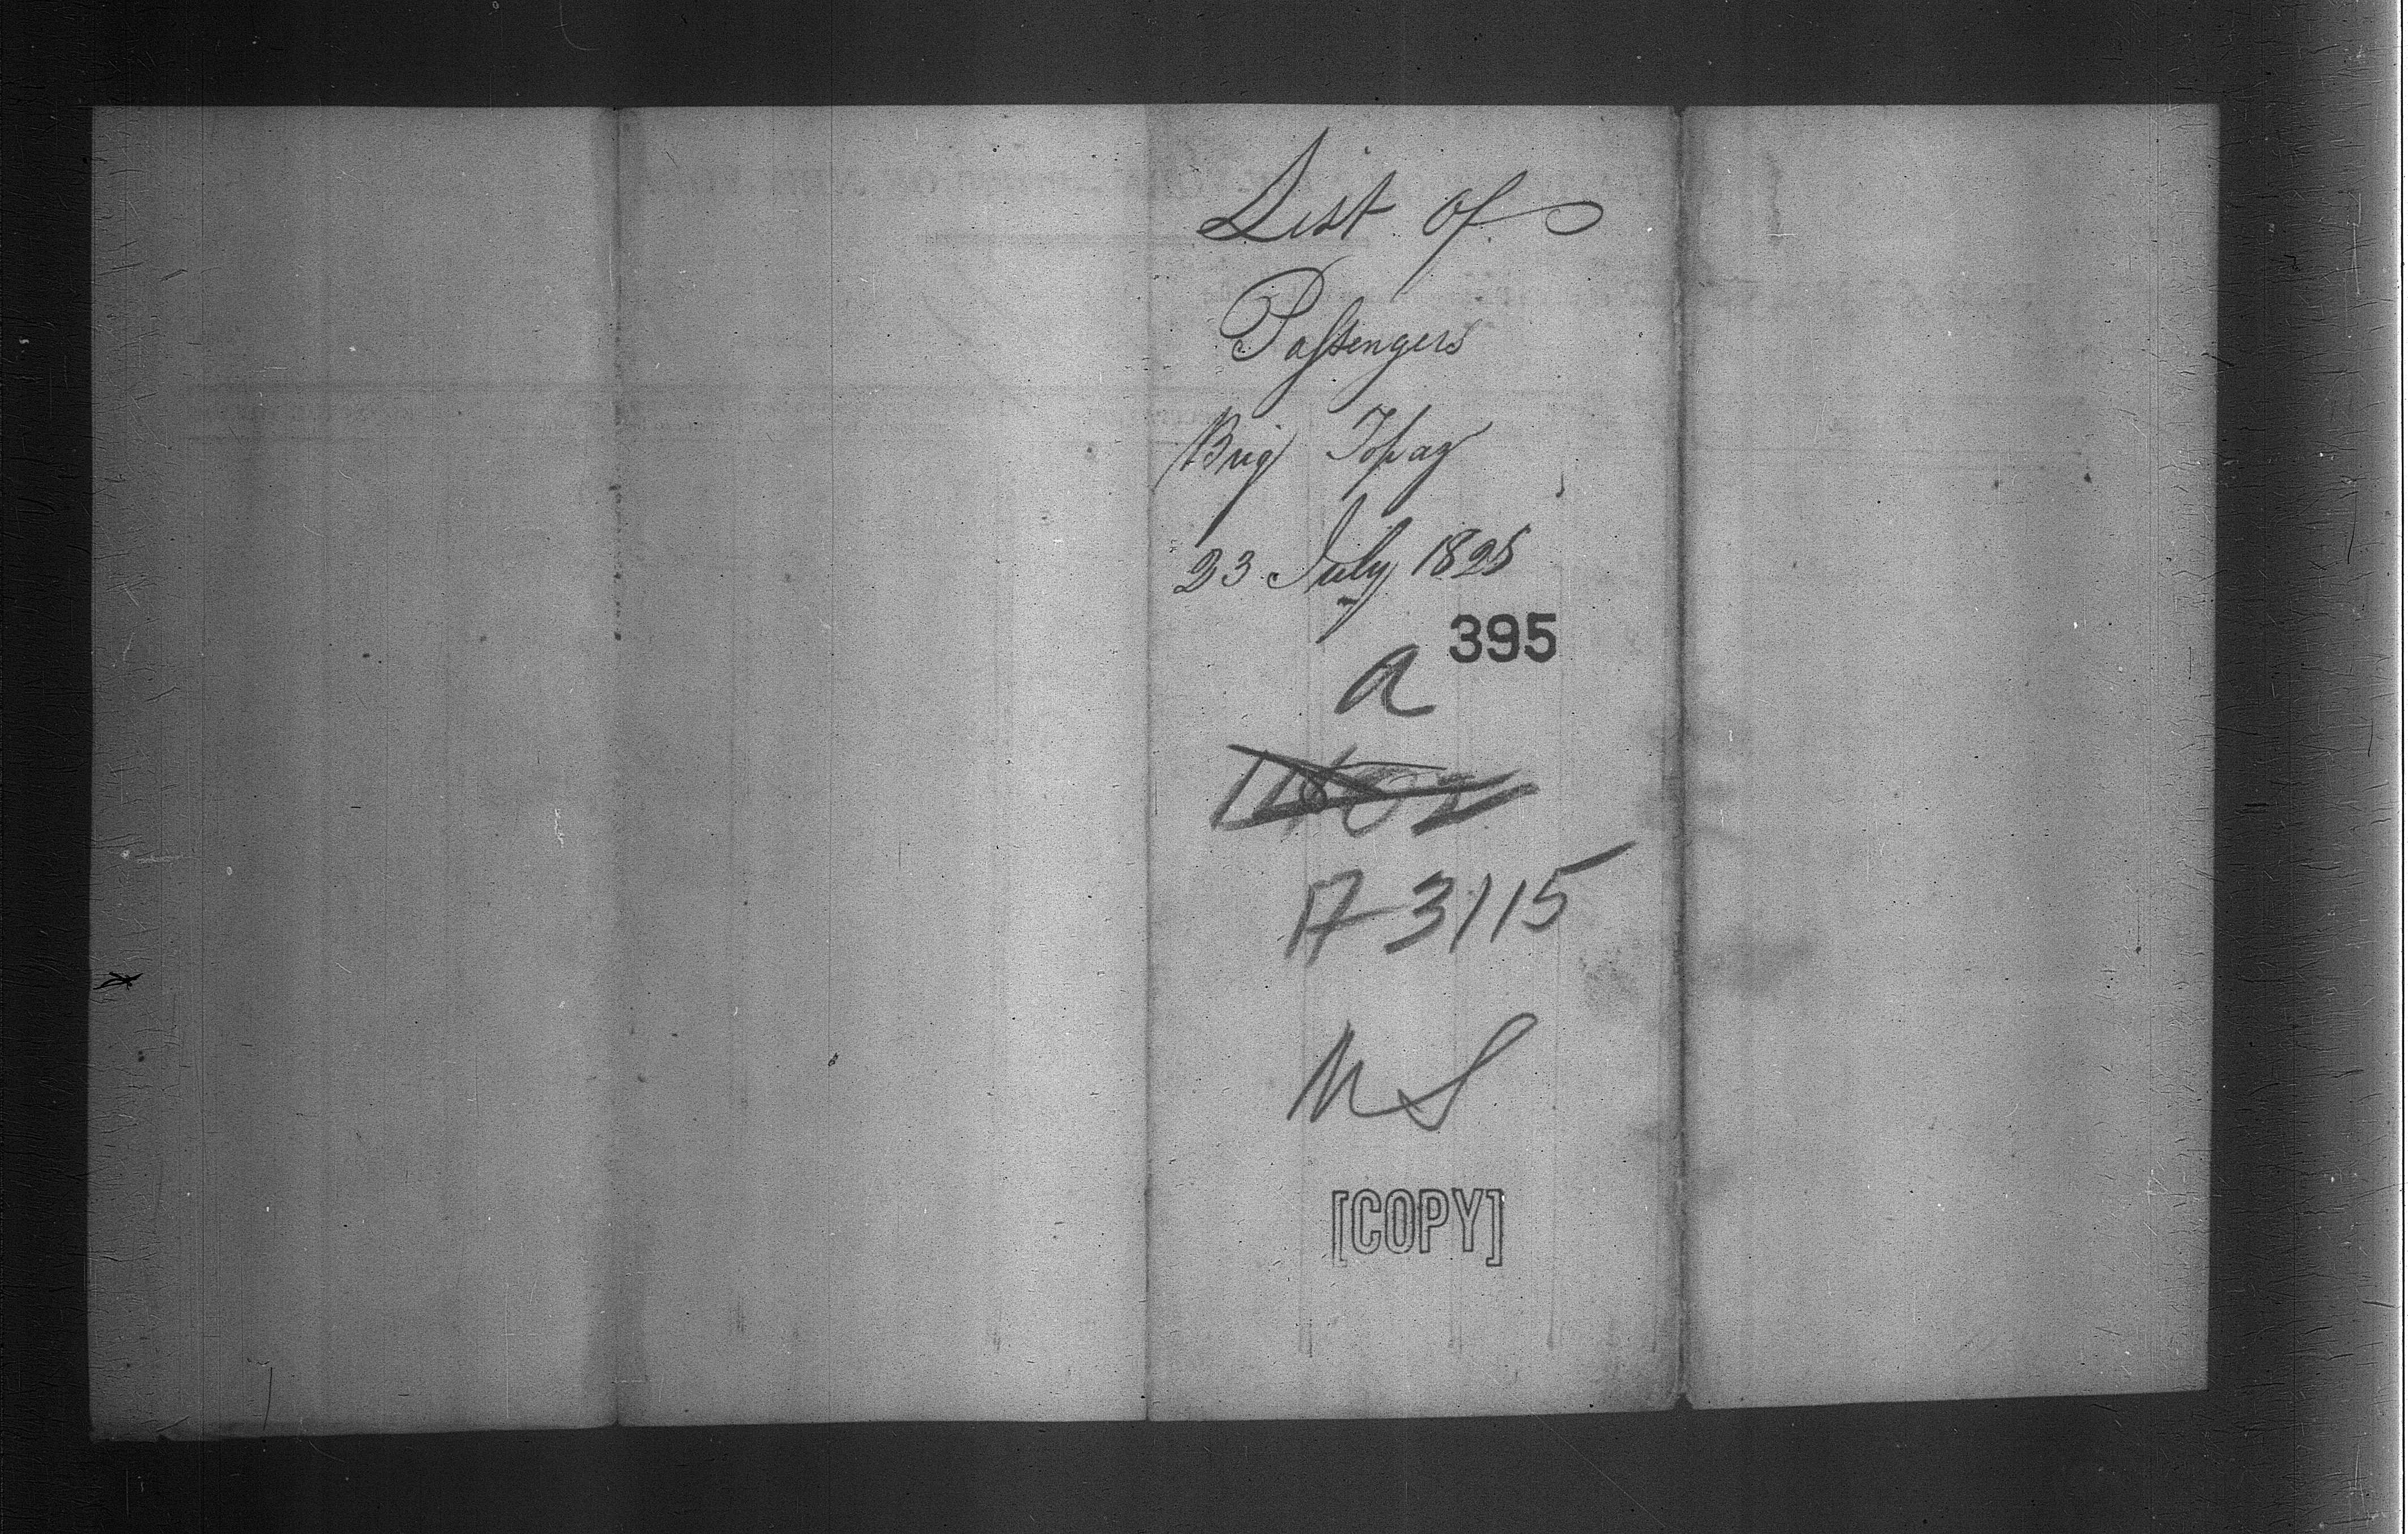 List of
Passengers
Brig Topaz
23 July 1825
395
a
A 3115
MS
[COPY]